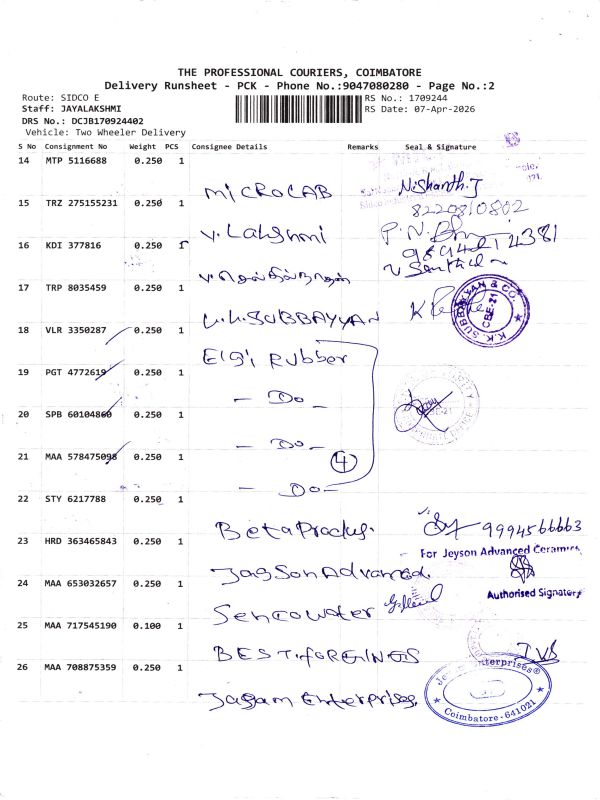 THE PROFESSIONAL COURIERS, COIMBATORE
Delivery Runsheet - PCK - Phone No.:9047080280 - Page No.:2
Route: SIDCO E
RS No.: 1709244
Staff: JAYALAKSHMI
RS Date: 07-Apr-2026
DRS No.: DCJB170924402
Vehicle: Two Wheeler Delivery
S No Consignment No Weight PCS Consignee Details Remarks Seal & Signature
14 MTP 5116688 0.250 1
MICROLAB Nishanth.J
8220810802
15 TRZ 275155231 0.250 1
V. Lakshmi P.N.
16 KDI 377816 0.250
V Senthil
17 TRP 8035459 0.250 1
K.K. SUBBAYYAN
K.K. SUBBAYYAN & CO. CBE-21
18 VLR 3350287 0.250 1
Elgi Rubber
19 PGT 4772619 0.250 1
- Do -
20 SPB 60104860 0.250 1
- Do -
21 MAA 578475098 0.250 1
4
- Do -
22 STY 6217788 0.250 1
Beta Produs. 9994566663
23 HRD 363465843 0.250 1
For Jeyson Advanced Ceramics
Jagson Advanced.
24 MAA 653032657 0.250 1
Authorised Signatory
Sencowater
25 MAA 717545190 0.100 1
BEST.FORGINGS
26 MAA 708875359 0.250 1
Jagam Enterprises.
Enterprises®
Coimbatore-641021